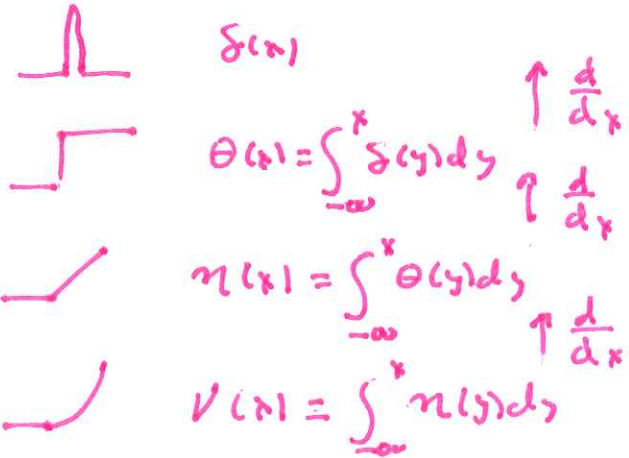 δ(x)
↑ d/dx
θ(x) = ∫_{-∞}^{x} δ(y)dy
↑ d/dx
η(x) = ∫_{-∞}^{x} θ(y)dy
↑ d/dx
ν(x) = ∫_{-∞}^{x} η(y)dy